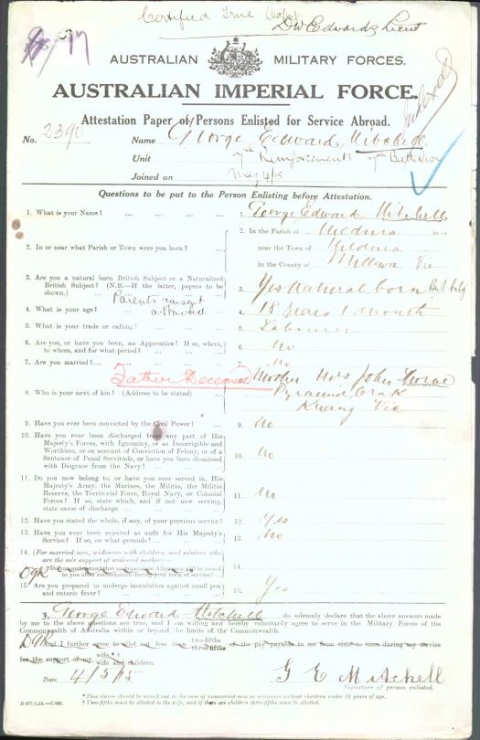 Certified True Copy
D W Edwards Lieut
AUSTRALIAN MILITARY FORCES.
AUSTRALIAN IMPERIAL FORCE.
Attestation Paper of Persons Enlisted for Service Abroad.
No. 2390 Name George Edward Mitchell
Unit 7th Reinforcements 7th Battalion
Joined on May 4/15
Questions to be put to the Person Enlisting before Attestation.
1. What is your Name? ... 1. George Edward Mitchell
2. In or near what Parish or Town were you born? ... 2. In the Parish of Mildura in or
near the Town of Mildura
in the County of Millewa Vic
3. Are you a natural born British Subject or a Naturalized
British Subject? (N.B.—If the latter, papers to be
shown.) 3. Yes Natural born Brit. Subj
Parents consent
attached
4. What is your age? 4. 18 years 1 month
5. What is your trade or calling? 5. Labourer
6. Are you, or have you been, an Apprentice? If so, where,
to whom, and for what period? 6. No
7. Are you married? 7. No
Father Deceased
8. Who is your next of kin? (Address to be stated) Mother Mrs John
Pyramid Creek
Vic
9. Have you ever been convicted by the Civil Power? 9. No
10. Have you ever been discharged from any part of His
Majesty's Forces, with Ignominy, or as Incorrigible and
Worthless, or on account of Conviction of Felony, or of a
Sentence of Penal Servitude, or have you been dismissed
with Disgrace from the Navy? 10. No
11. Do you now belong to, or have you ever served in, His
Majesty's Army, the Marines, the Militia, the Militia
Reserve, the Territorial Force, Royal Navy, or Colonial
Forces? If so, state which, and if not now serving,
state cause of discharge 11. No
12. Have you stated the whole, if any, of your previous service? 12. Yes
13. Have you ever been rejected as unfit for His Majesty's
Service? If so, on what grounds? 13. No
14. (For married men, widowers with children, and soldiers who
are the sole support of widowed mother)—
15. Are you prepared to undergo inoculation against small pox
and enteric fever? 15. Yes
I, George Edward Mitchell do solemnly declare that the above answers made
by me to the above questions are true, and I am willing and hereby voluntarily agree to serve in the Military Forces of the
Commonwealth of Australia within or beyond the limits of the Commonwealth.
And I further agree to allot not less than two-fifths three-fifths of the pay payable to me from time to time during my service
for the support of my wife wife and children.
Date 4/5/15 G E Mitchell
Signature of person enlisted.
* This clause should be struck out in the case of unmarried men or widowers without children under 18 years of age.
† Two-fifths must be allotted to the wife, and if there are children three-fifths must be allotted.